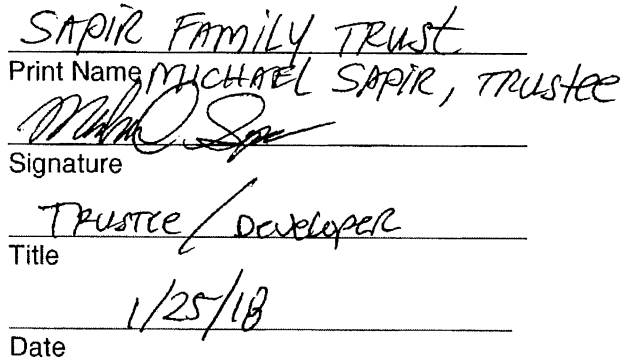 SAPIR FAMILY TRUST
Print Name MICHAEL SAPIR, TRUSTEE
Signature
TRUSTEE / DEVELOPER
Title
1/25/18
Date